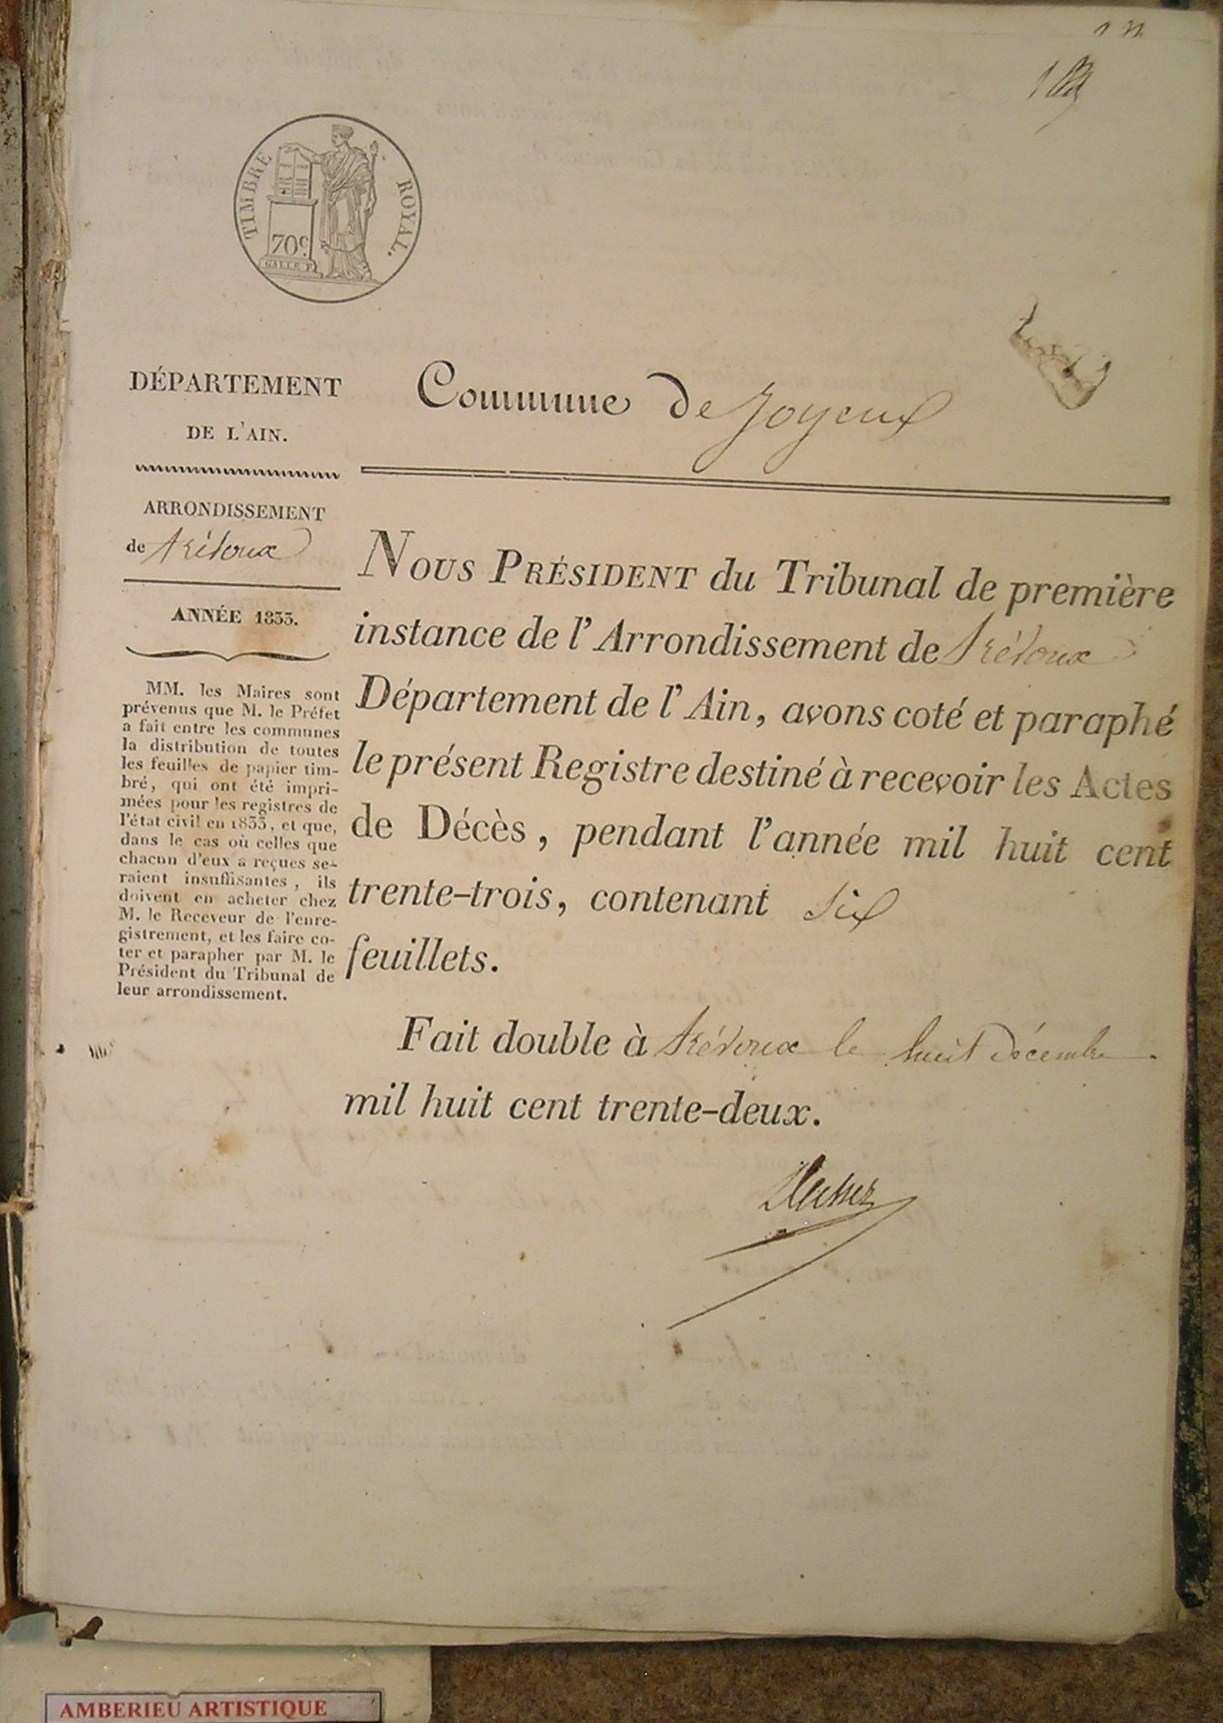 TIMBRE ROYAL.
70c
DÉPARTEMENT
DE L'AIN.
ARRONDISSEMENT
de Trévoux
ANNÉE 1833.
MM. les Maires sont
prévenus que M. le Préfet
a fait entre les communes
la distribution de toutes
les feuilles de papier tim-
bré, qui ont été impri-
mées pour les registres de
l'état civil en 1833, et que,
dans le cas où celles que
chacun d'eux a reçues se-
raient insuffisantes, ils
doivent en acheter chez
M. le Receveur de l'enre-
gistrement, et les faire co-
ter et parapher par M. le
Président du Tribunal de
leur arrondissement.
Commune de Joyeux
NOUS PRÉSIDENT du Tribunal de première
instance de l'Arrondissement de Trévoux
Département de l'Ain, avons coté et paraphé
le présent Registre destiné à recevoir les Actes
de Décès, pendant l'année mil huit cent
trente-trois, contenant six
feuillets.
Fait double à Trévoux le huit décembre
mil huit cent trente-deux.
AMBERIEU ARTISTIQUE